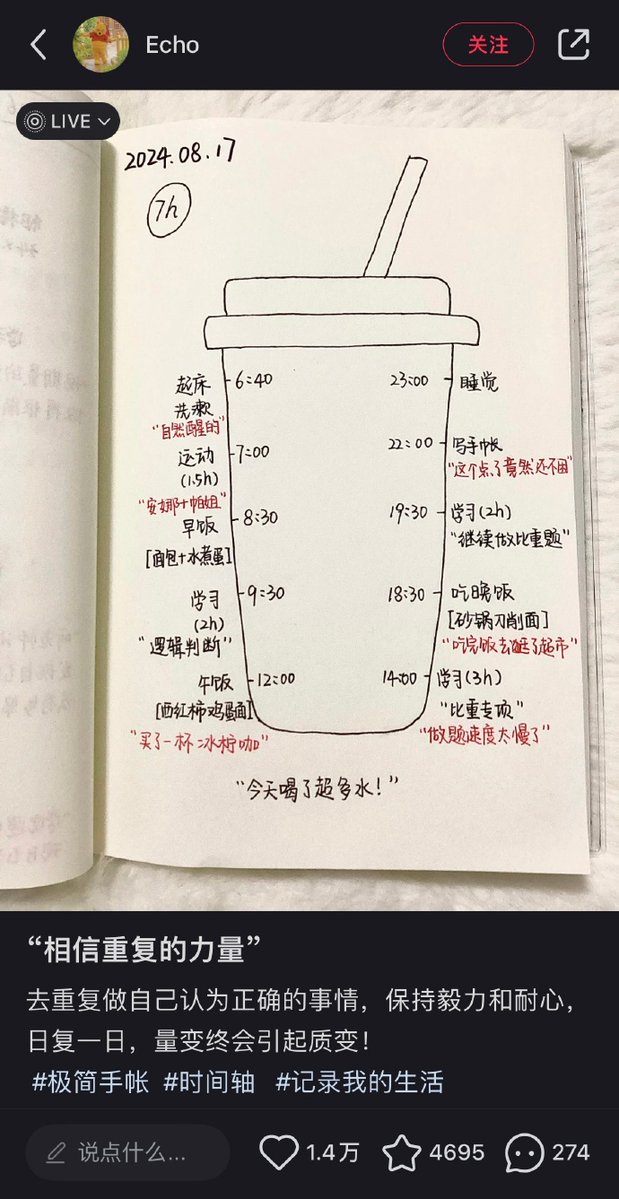 Echo
关注
LIVE
2024.08.17
7h
起床
洗漱
6:40
"自然醒的"
运动
(1.5h)
7:00
"安娜+帕姐"
早饭
8:30
[面包+水煮蛋]
学习
(2h)
9:30
"逻辑判断"
午饭
12:00
[西红柿鸡蛋面]
"买了一杯冰柠咖"
23:00
睡觉
22:00
写手帐
"这个点了竟然还不困"
19:30
学习(2h)
"继续做比重题"
18:30
吃晚饭
[砂锅刀削面]
"吃完饭去逛了超市"
14:00
学习(3h)
"比重专项"
"做题速度太慢了"
"今天喝了超多水!"
“相信重复的力量”
去重复做自己认为正确的事情，保持毅力和耐心，
日复一日，量变终会引起质变！
#极简手帐 #时间轴 #记录我的生活
说点什么... 1.4万 4695 274